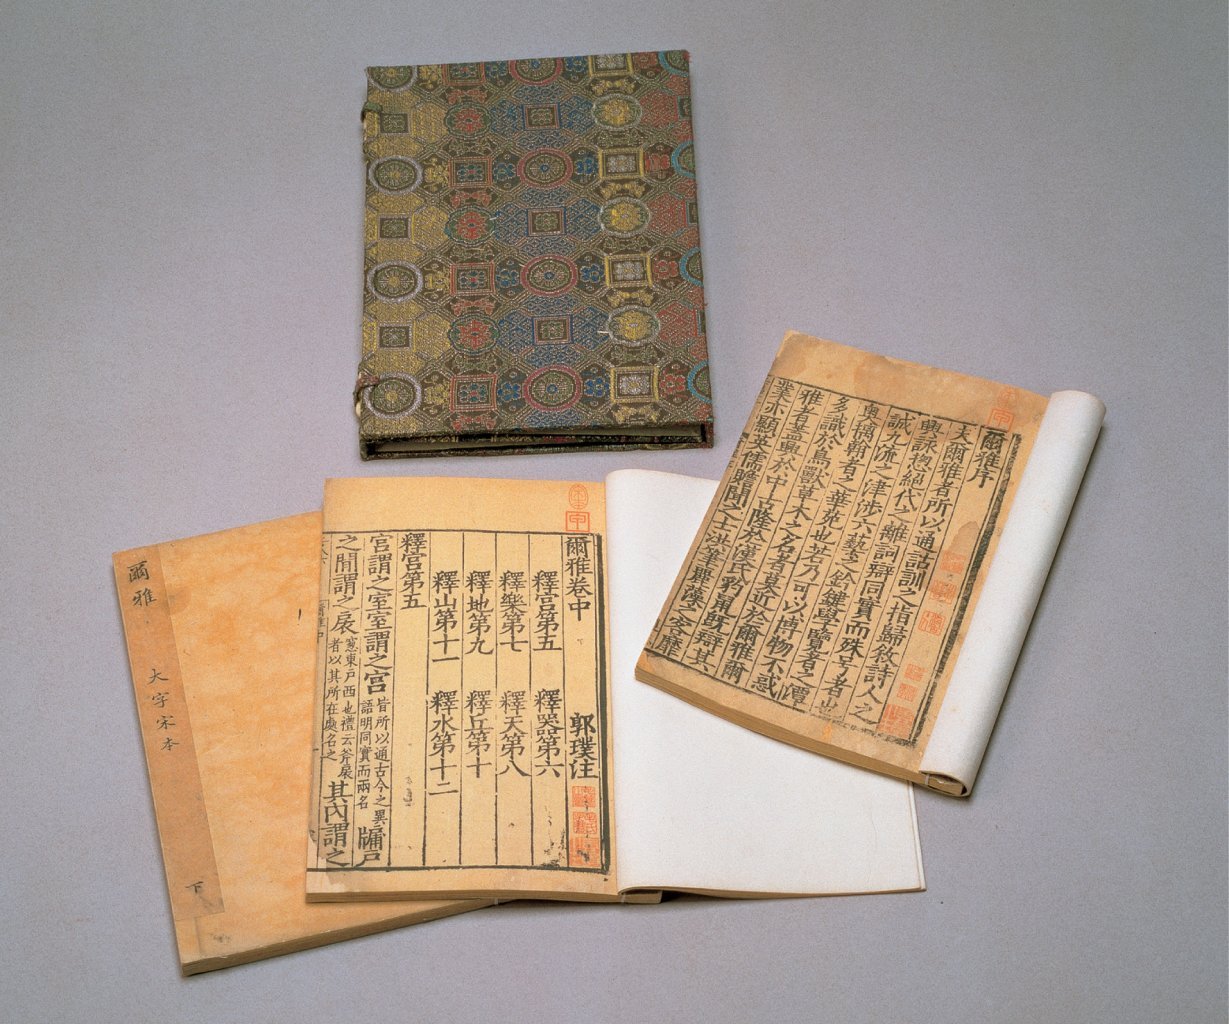 爾雅序
夫爾雅者所以通詁訓之指歸敘詩人之
興詠揔絕代之離詞辯同實而殊号者也
誠九流之津涉六藝之鈐鍵學覽者之潭
奧摛翰者之華苑也若乃可以博物不惑
多識於鳥獸草木之名者莫近於爾雅爾
雅者蓋興於中古隆於漢氏豹鼠既辯其
業亦顯英儒贍聞之士洪筆麗藻之客靡
爾雅卷中 郭璞注
釋宮第五 釋器第六
釋樂第七 釋天第八
釋地第九 釋丘第十
釋山第十一 釋水第十二
釋宮第五
宮謂之室室謂之宮皆所以通古今之異語明同實而兩名牖戶
之間謂之扆窻東戶西也禮云斧扆者以其所在處名之其內謂之
爾雅 大字宋本 下